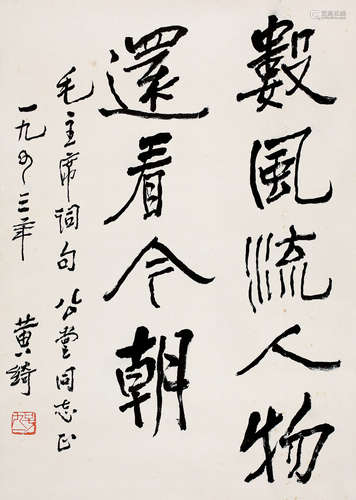 數風流人物
還看今朝
毛主席詞句 公堂同志正
一九九三年
黄绮